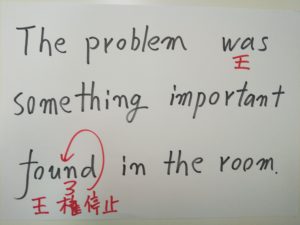 The problem was
王
something important
found in the room.
王 権停止